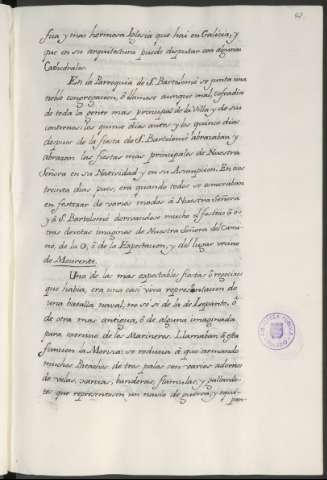 sua y mas hermosa Iglesia que hai en Galicia, y
que en su arquitectura puede disputar con algunas
Cathedrales.
En la Parroquia de S. Bartolomé se junta una
noble congregacion, ò llamase aunque mal, cofradia
de toda la gente mas principal de la Villa y de sus
contornos: los quince dias antes y los quince dias
despues de la fiesta de S. Bartolomé abrazaban y
abrazan las fiestas mas principales de Nuestra
Señora en su Natividad y en su Assumpcion. En los
treinta dias pues, era quando todos se esmeraban
en festejar de varios modos á Nuestra Señora
y á S. Bartolomé derivandose mucho el festejo á
tres devotas imagenes de Nuestra Señora del Cami-
no, de la O, ò de la Expectacion, y del lugar vecino
de Mourente.
Una de las mas expectables fiestas ò regocijos
que habia, era una casi viva representacion de
una batalla naval, no se si de la de Lepanto, ò
de otra mas antigua, ò de alguna imaginada
para exercicio de los Marineros. Llamaban á esta
funcion la Morisca: se reducia á que formando
muchos Bateles de tres palos con varios adornos
de velas, xarcias, banderas, flamulas, y gallarde-
tes que representasen un navio de guerra, y equi-
pan